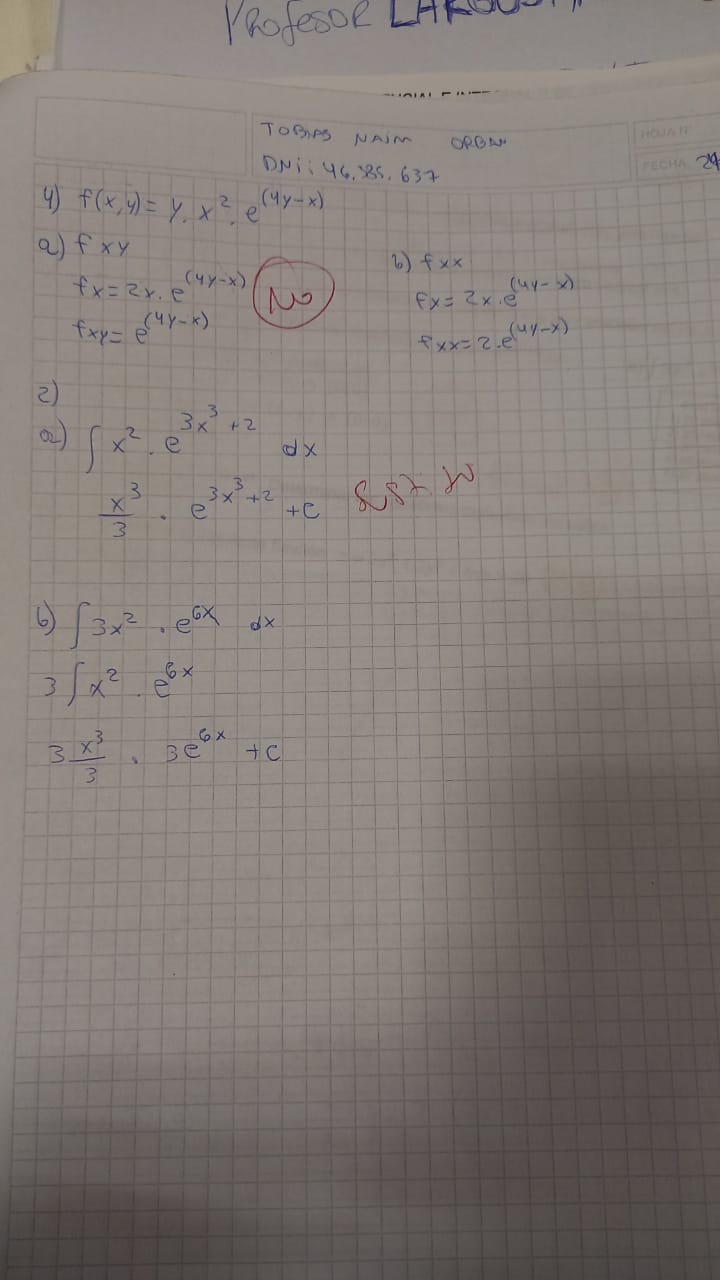 PROFESOR
TOBIAS NAIM
DNI: 46.585.637
HOJA Nº
FECHA 24
4) f(x,y)= y. x². e^(4y-x)
a) fxy
fx= 2x. e^(4y-x)
fxy= e^(4y-x)
NO
b) fxx
fx= 2x. e^(4y-x)
fxx= 2. e^(4y-x)
2)
a) ∫ x² . e^3x³+2 dx
x³/3 . e^3x³+2 +c
b) ∫ 3x² . e^6x dx
3 ∫ x² . e^6x
3 x³/3 . 3e^6x +c